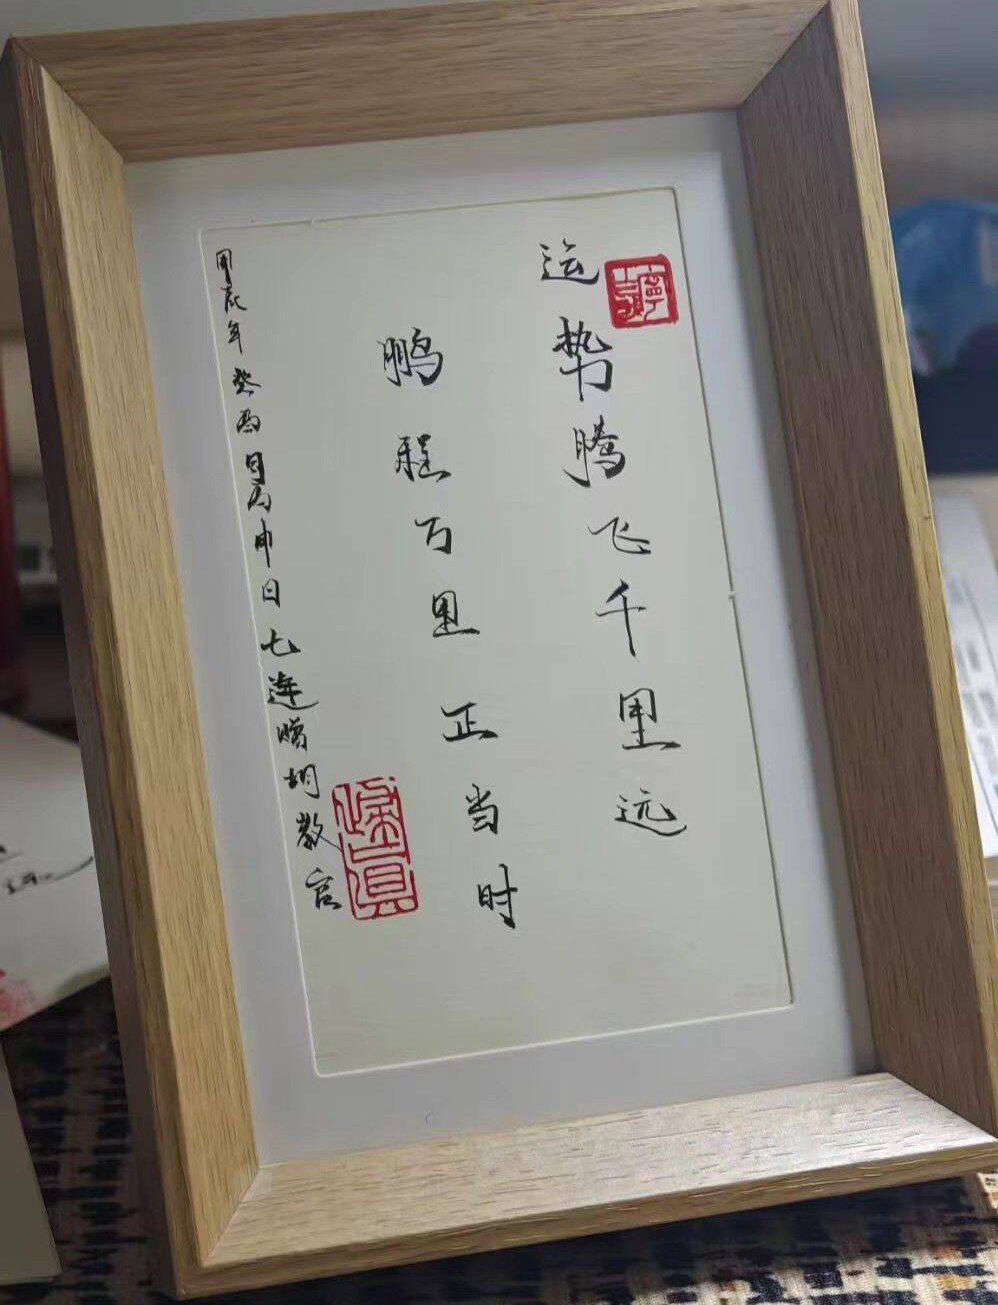 运势腾飞千里远
鹏程万里正当时
甲辰年癸酉月丙申日七连赠胡教官